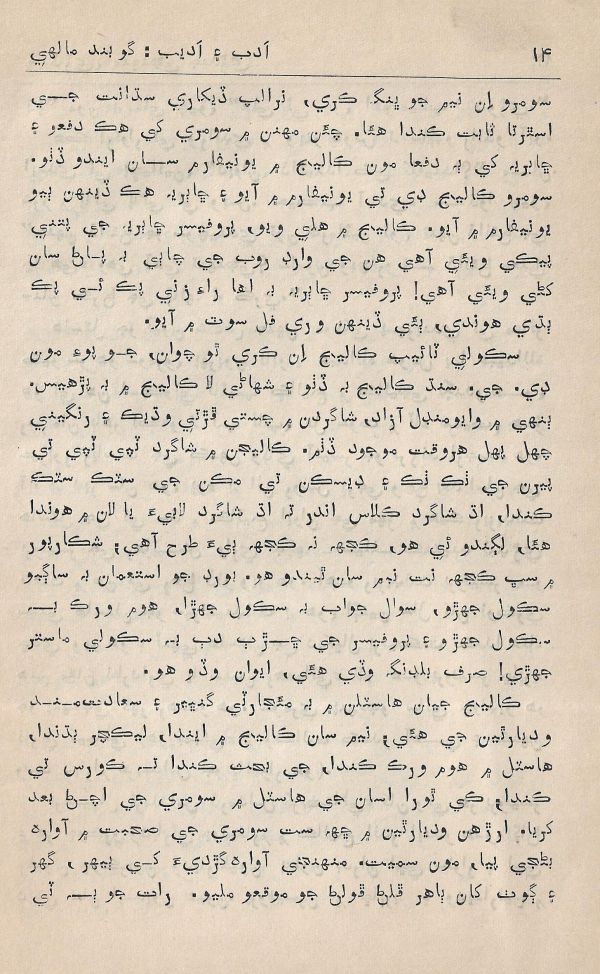 ۱۴ اَدب ۽ اَديب : گوبند مالھي
سومرو اِن نيم جو ڀنگ ڪري، نرالپ ڏيکاري سڌانت جي
اسٿرتا ثابت ڪندا هئا. ڇئن مهنن ۾ سومري کي هڪ دفعو ۽
ڇاٻريہ کي ٻہ دفعا مون ڪاليج ۾ يونيفارم سان ايندو ڏٺو.
سومرو ڪاليج ڊي تي يونيفارم ۾ آيو ۽ ڇاٻريہ هڪ ڏينهن ٻيو
يونيفارم ۾ آيو. ڪاليج ۾ هلي ويو، پروفيسر ڇاٻريہ جي پتني
پيڪي ويئي آهي هن جي وارڊ روب جي چاٻي بہ پاڻ سان
کڻي ويئي آهي! پروفيسر ڇاٻريہ بہ اها راءِ زني پڪ ئي پڪ
ٻڌي هوندي، ٻئي ڏينهن وري فل سوٽ ۾ آيو.
سڪولي ٽائيپ ڪاليج اِن ڪري ٿو چوان، جو پوءِ مون
ڊي. جي. سنڌ ڪاليج بہ ڏٺو ۽ شهاڻي لا ڪاليج ۾ بہ پڙهيس.
ٻنهي ۾ وايومنڊل آزاد، شاگردن ۾ چستي ڦڙتي وڌيڪ ۽ رنگيني
چهل پهل هروقت موجود ڏٺم. ڪاليجن ۾ شاگرد ٽپي ٽپي تي
پيرن جي ٺڪ ٺڪ ۽ ڊيسڪن تي مڪن جي سٽڪ سٽڪ
ڪندا، اڌ شاگرد ڪلاس اندر تہ اڌ شاگرد لابيءَ يا لان ۾ هوندا
هئا، لڳندو ئي هو، ڪجهہ نہ ڪجهہ ٻيءَ طرح آهي؛ شڪارپور
۾ سڀ ڪجهہ نت نيم سان ٿيندو هو. بورڊ جو استعمان بہ ساڳيو
سڪول جهڙو، سوال جواب بہ سڪول جهڙا، هوم ورڪ بہ
سڪول جهڙو ۽ پروفيسر جي چڙٻ دٻ بہ سڪولي ماستر
جهڙي! صرف بلڊنگ وڏي هئي، ايوان وڏو هو.
ڪاليج جيان هاسٽلن ۾ بہ مئجارٽي گنڀير ۽ سعادتمند
وديارٿين جي هئي؛ نيم سان ڪاليج ۾ ايندا، ليڪچر ٻڌندا،
هاسٽل ۾ هوم ورڪ ڪندا، جي بحث ڪندا تہ ڪورس تي
ڪندا؛ ڪي ٿورا اسان جي هاسٽل ۾ سومري جي اچڻ بعد
ڪريا. ارڙهن وديارٿين ۾ ڇهہ ست سومري جي صحبت ۾ آواره
بڻجي پيا، مون سميت. منهنجي آواره گرديءَ کي ٻيهر، گهر
۽ ڳوٺ کان ٻاهر ڦلڻ ڦولڻ جو موقعو مليو. رات جو بہ ٽي